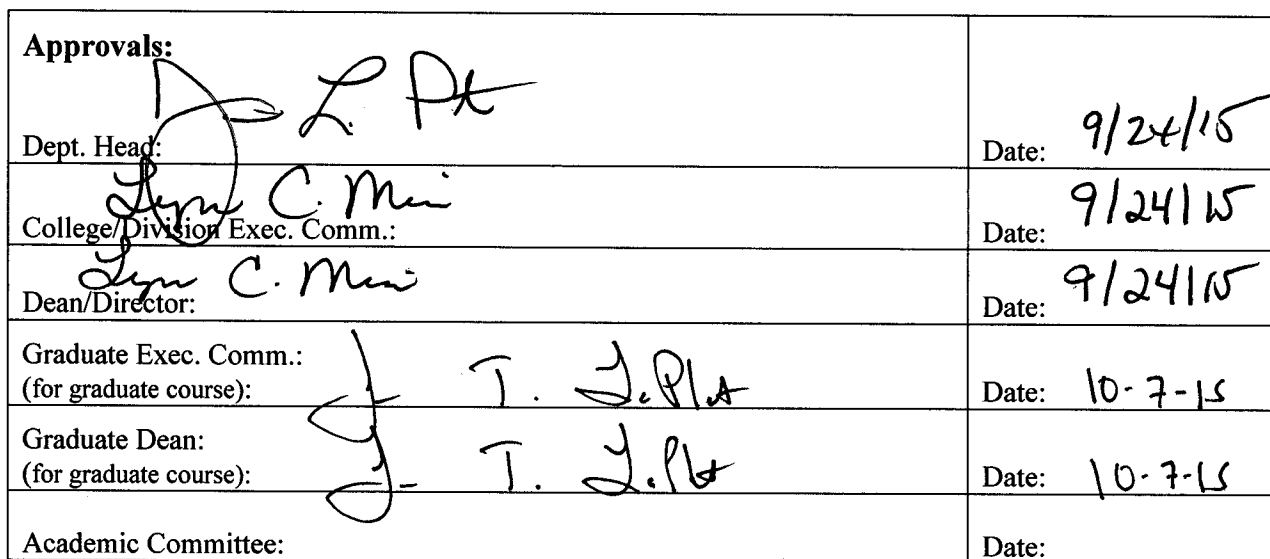 Approvals:
Dept. Head: L. Date: 9/24/15
C. 
College/Division Exec. Comm.: Date: 9/24/15
C.
Dean/Director: Date: 9/24/15
Graduate Exec. Comm.:
(for graduate course): T. Date: 10-7-15
Graduate Dean:
(for graduate course): T. Date: 10-7-15
Academic Committee: Date: